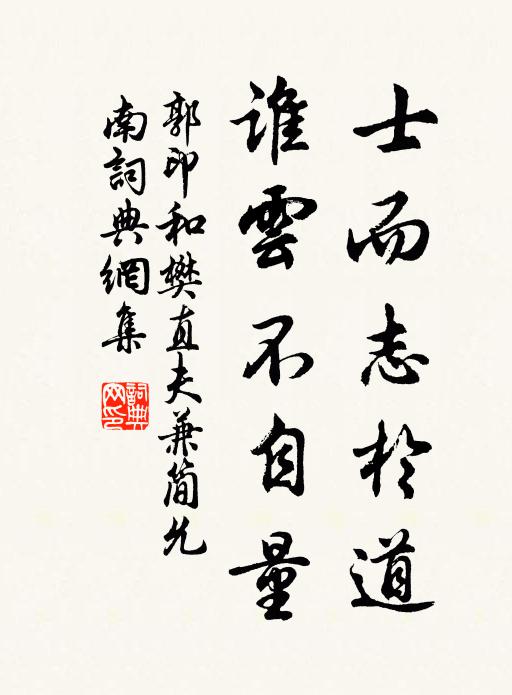 士而志於道
誰雲不自量
郭印和樊直夫兼簡允
南詞典網集
詞典網印